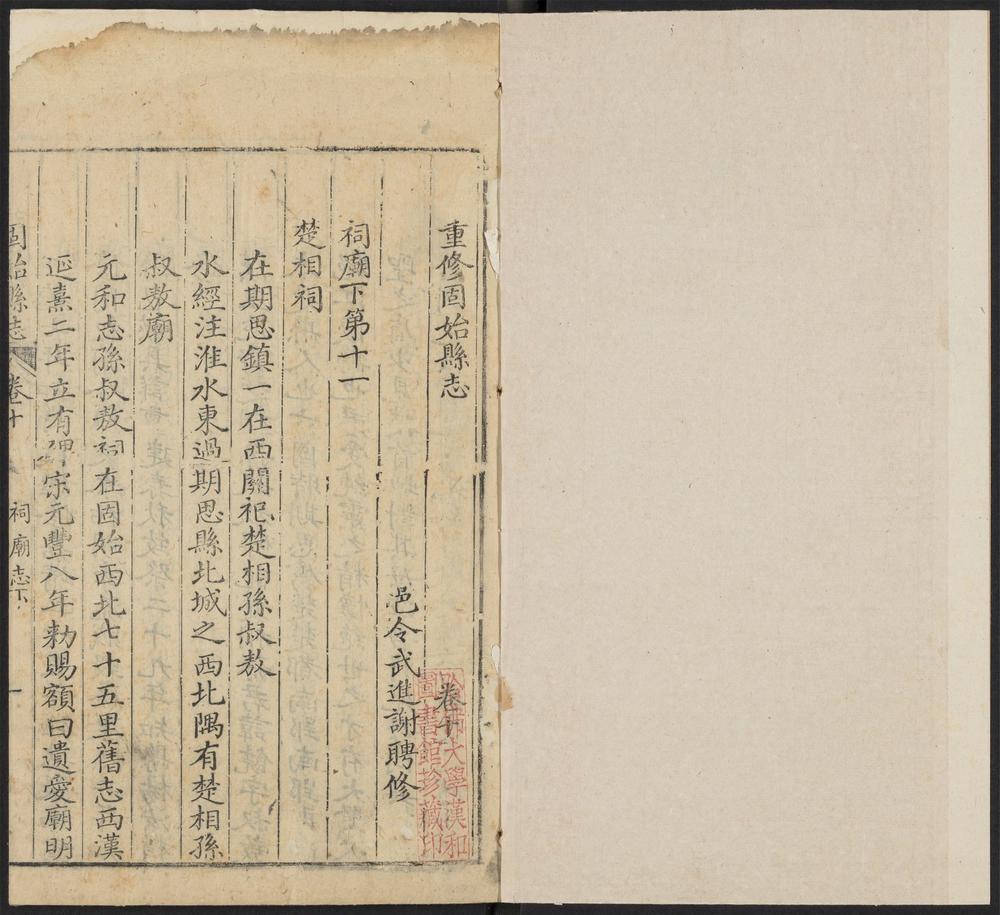 重修固始縣志 卷十
邑令武進謝聘修
祠廟下第十一
楚相祠
在期思鎮一在西關祀楚相孫叔敖
水經注淮水東過期思縣北城之西北隅有楚相孫
叔敖廟
元和志孫叔敖祠在固始西北七十五里舊志西漢
延熹二年立有碑宋元豐八年勅賜額曰遺愛廟明
固始縣志 卷十 祠廟志下 一
哈佛大學漢和
圖書館珍藏印